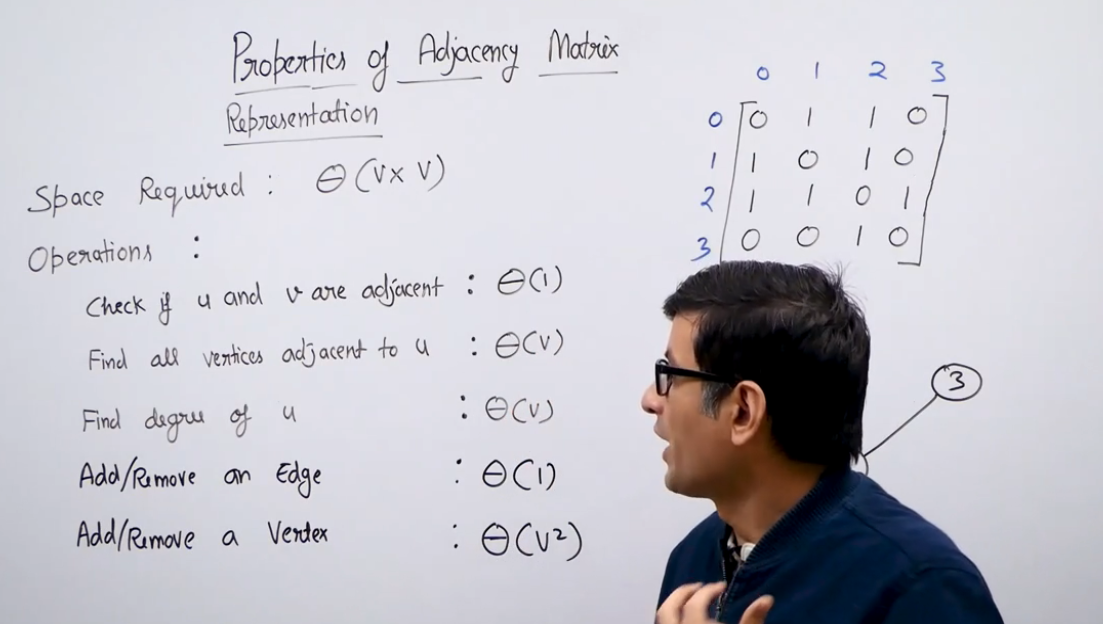 Properties of Adjacency Matrix
Representation
Space Required : Θ(V x V)
Operations :
Check if u and v are adjacent : Θ(1)
Find all vertices adjacent to u : Θ(V)
Find degree of u : Θ(V)
Add/Remove an Edge : Θ(1)
Add/Remove a Vertex : Θ(V²)
0 1 2 3
0 0 1 1 0
1 1 0 1 0
2 1 1 0 1
3 0 0 1 0
3